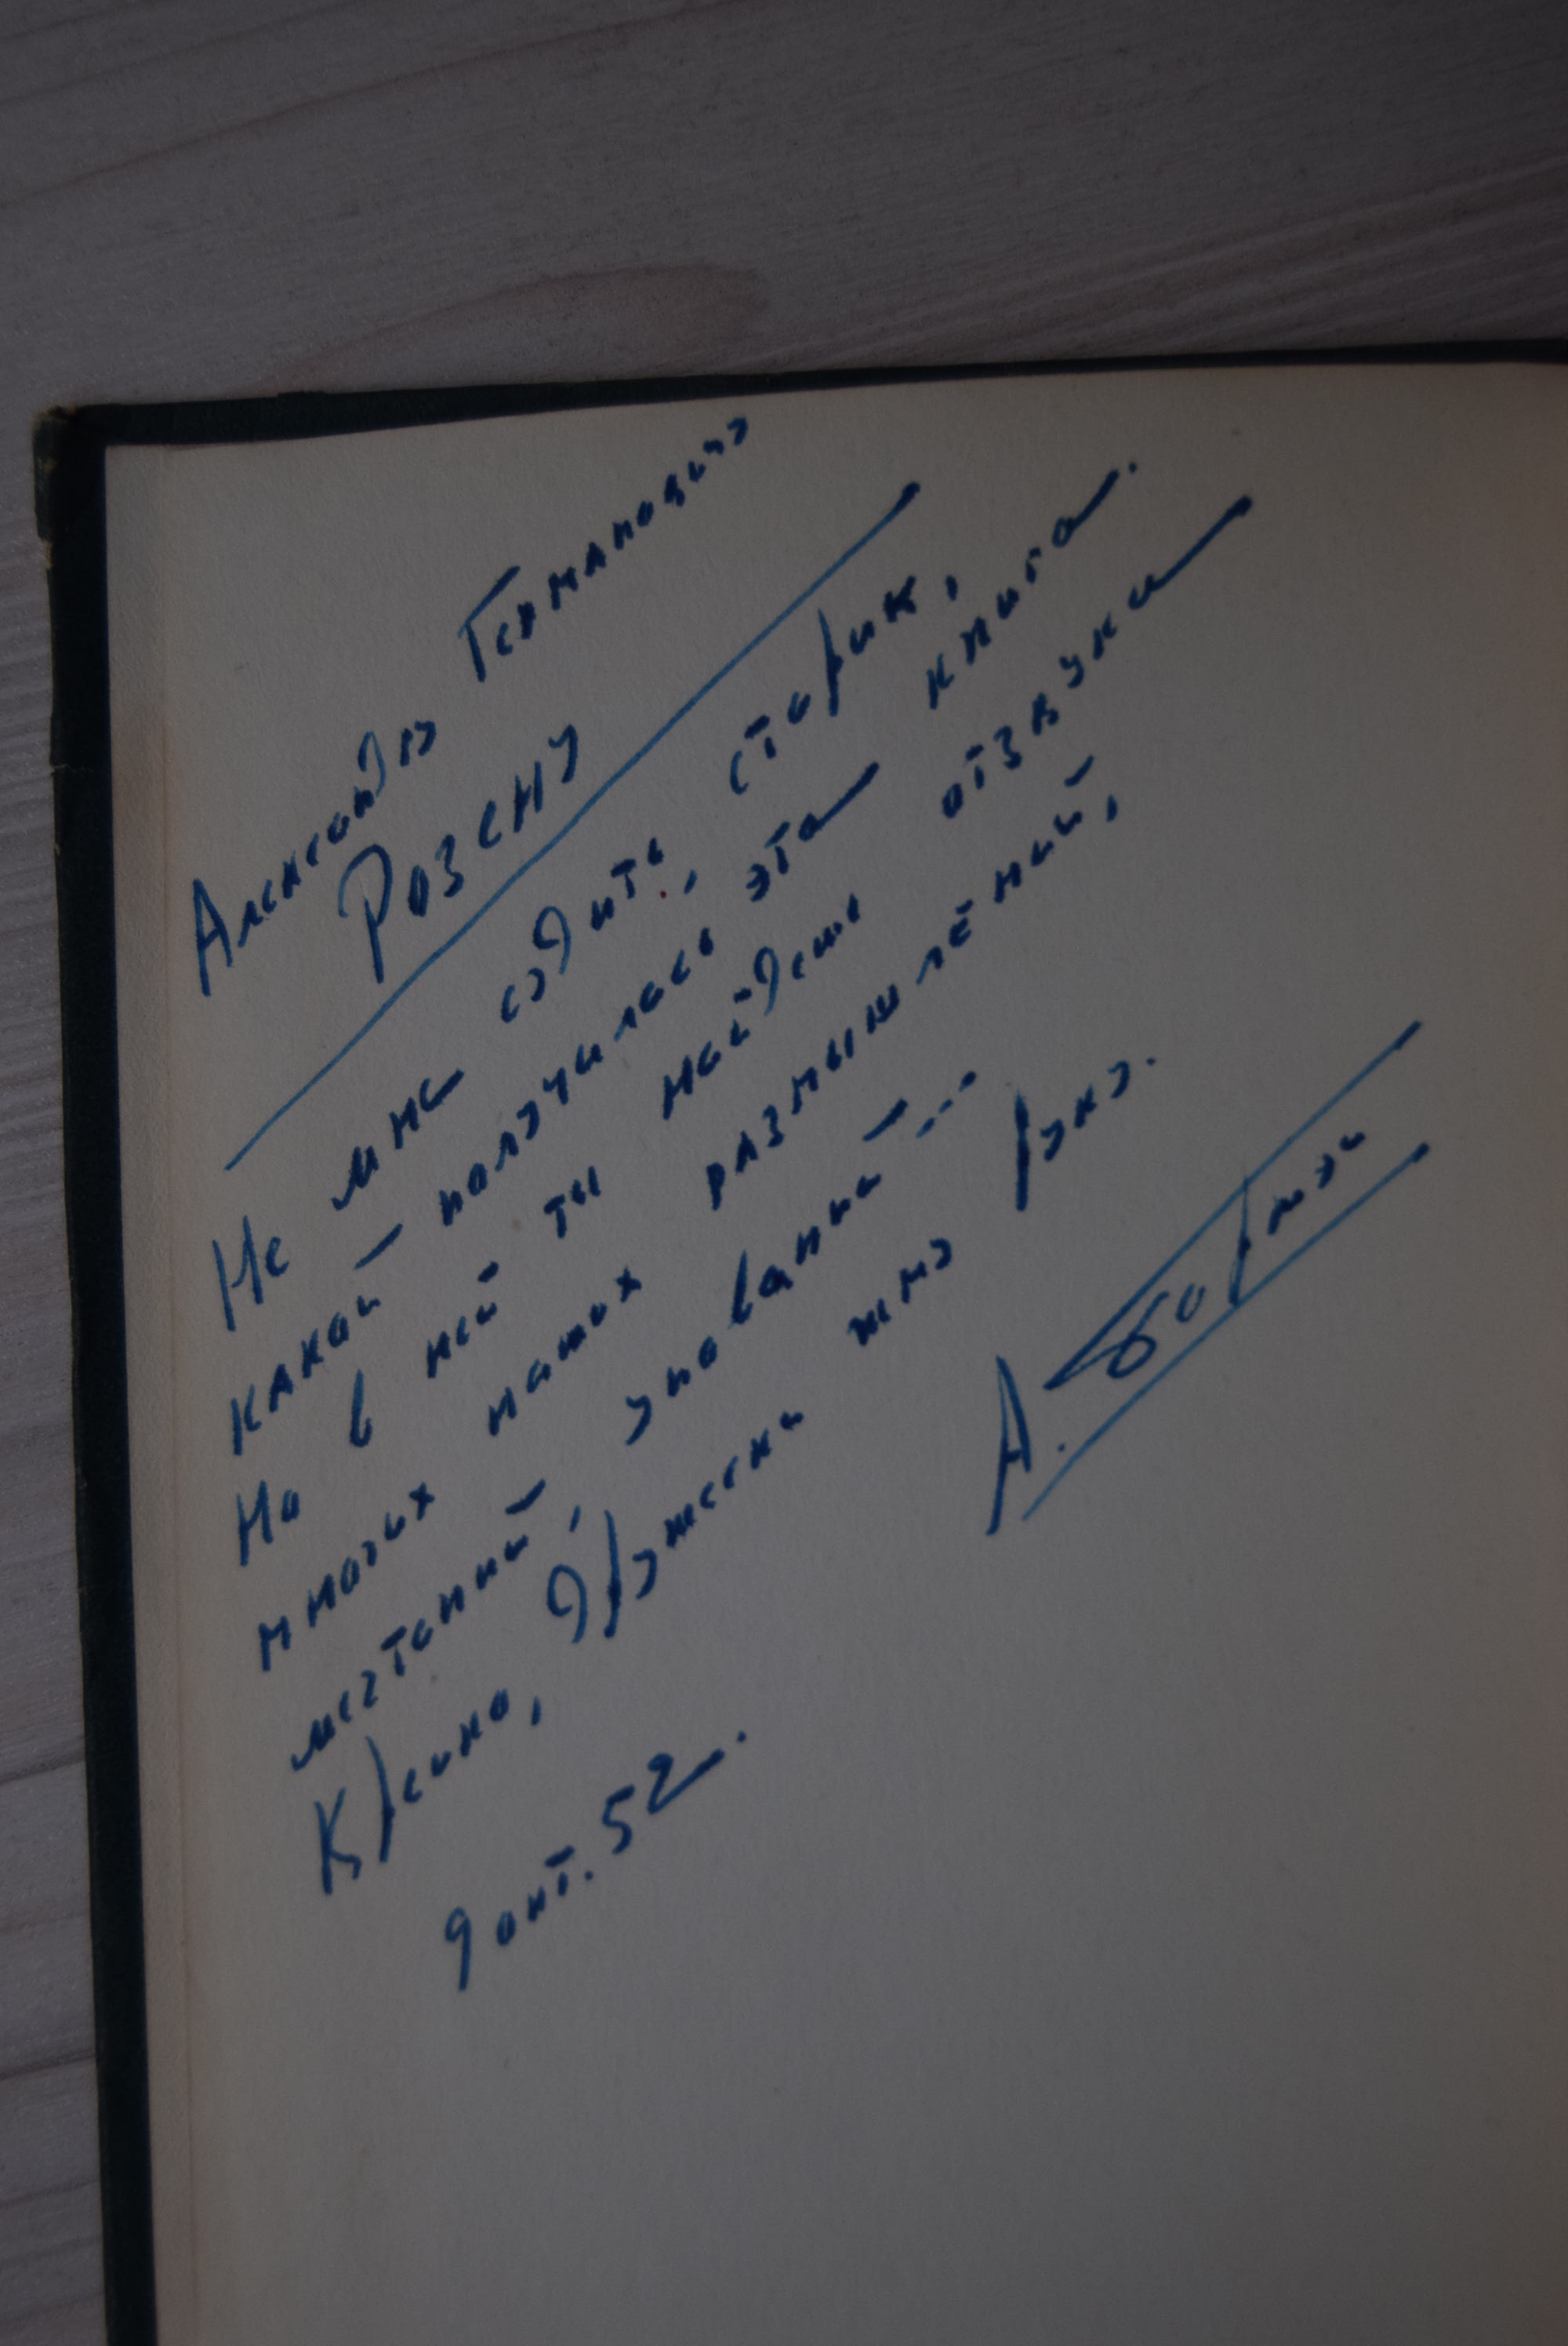 Александру Германовичу
Розену
Не мне судить, старик,
какай получилась эта книга.
Но в ней ты найдешь отзвуки
многих наших размышлений,
мечтаний, упований...
Крепко, дружески жму руку.
А.
9 окт. 52.